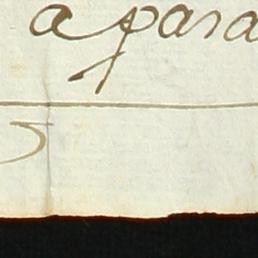 a para